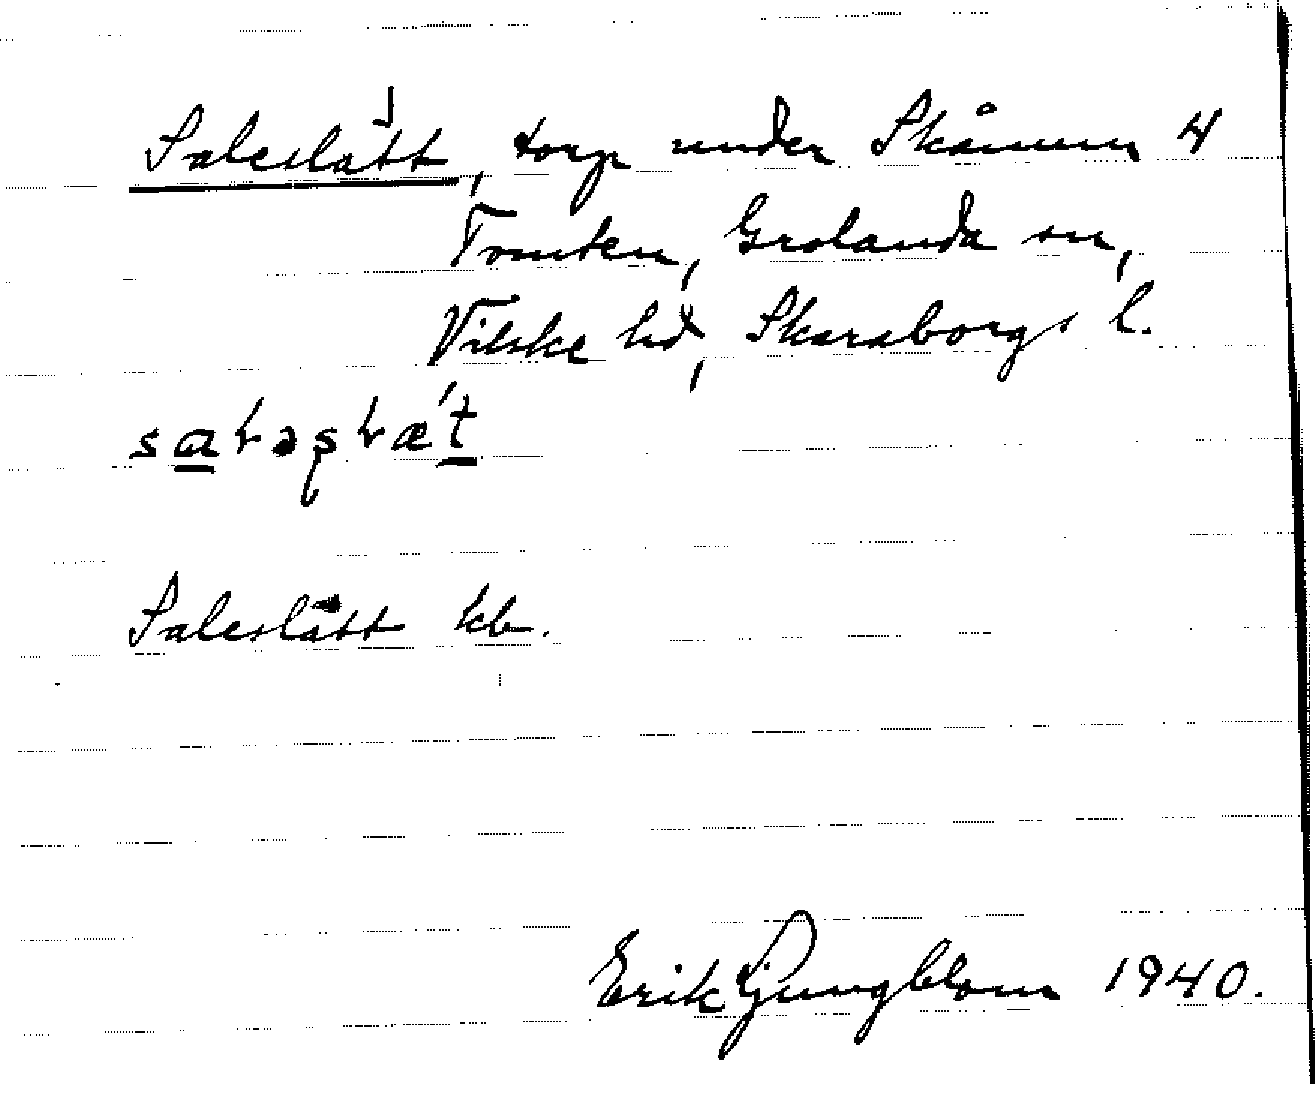 Saleslätt, torp under Skånum 4
Tomten, Grolanda sn,
Vilske hd, Skaraborgs l.
Saleslätt kb.
Erik Ljungblom 1940.